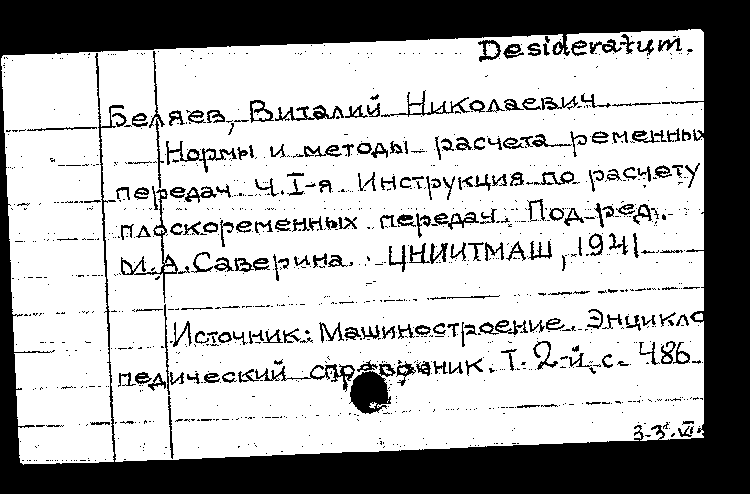 Desideratum.
Беляев, Виталий Николаевич.
Нормы и методы расчета ременных
передач. Ч. I-я. Инструкция по расчету
плоскоременных передач. Под ред.
М.А.Саверина. ЦНИИТМАШ, 1941.
Источник: Машиностроение. Энцикло
педический справочник. Т. 2-й, с. 486